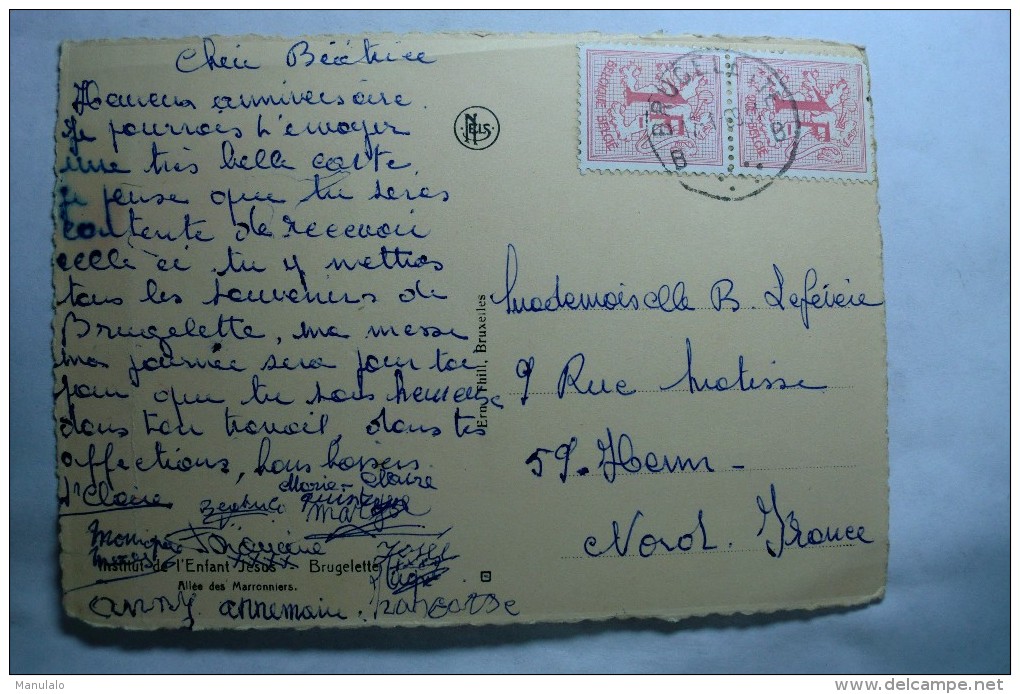 Chère Béatrice
Heureux anniversaire.
Je pourrais t'envoyer
une très belle carte
je pense que tu seras
contente de recevoir
celle ci tu y mettras
tous les souvenirs de
Brugelette, ma messe
ma journée sera pour toi
pour que tu sois heureuse
dans ton travail, dans tes
affections, bons baisers.
Claire
Marie-Claire
Monique
Josée
Institut de l'Enfant Jésus Brugelette
Allée des Marronniers.
anny annemarie.
NELS
Ern. Thill, Bruxelles
BELGIQUE BELGIË
1F
BELGIQUE BELGIË
1F
BRUGELETTE
B B
Mademoiselle B. Lefévère
9 Rue Matisse
59-Hem-
Nord. France
Manulalo
delcampe.net